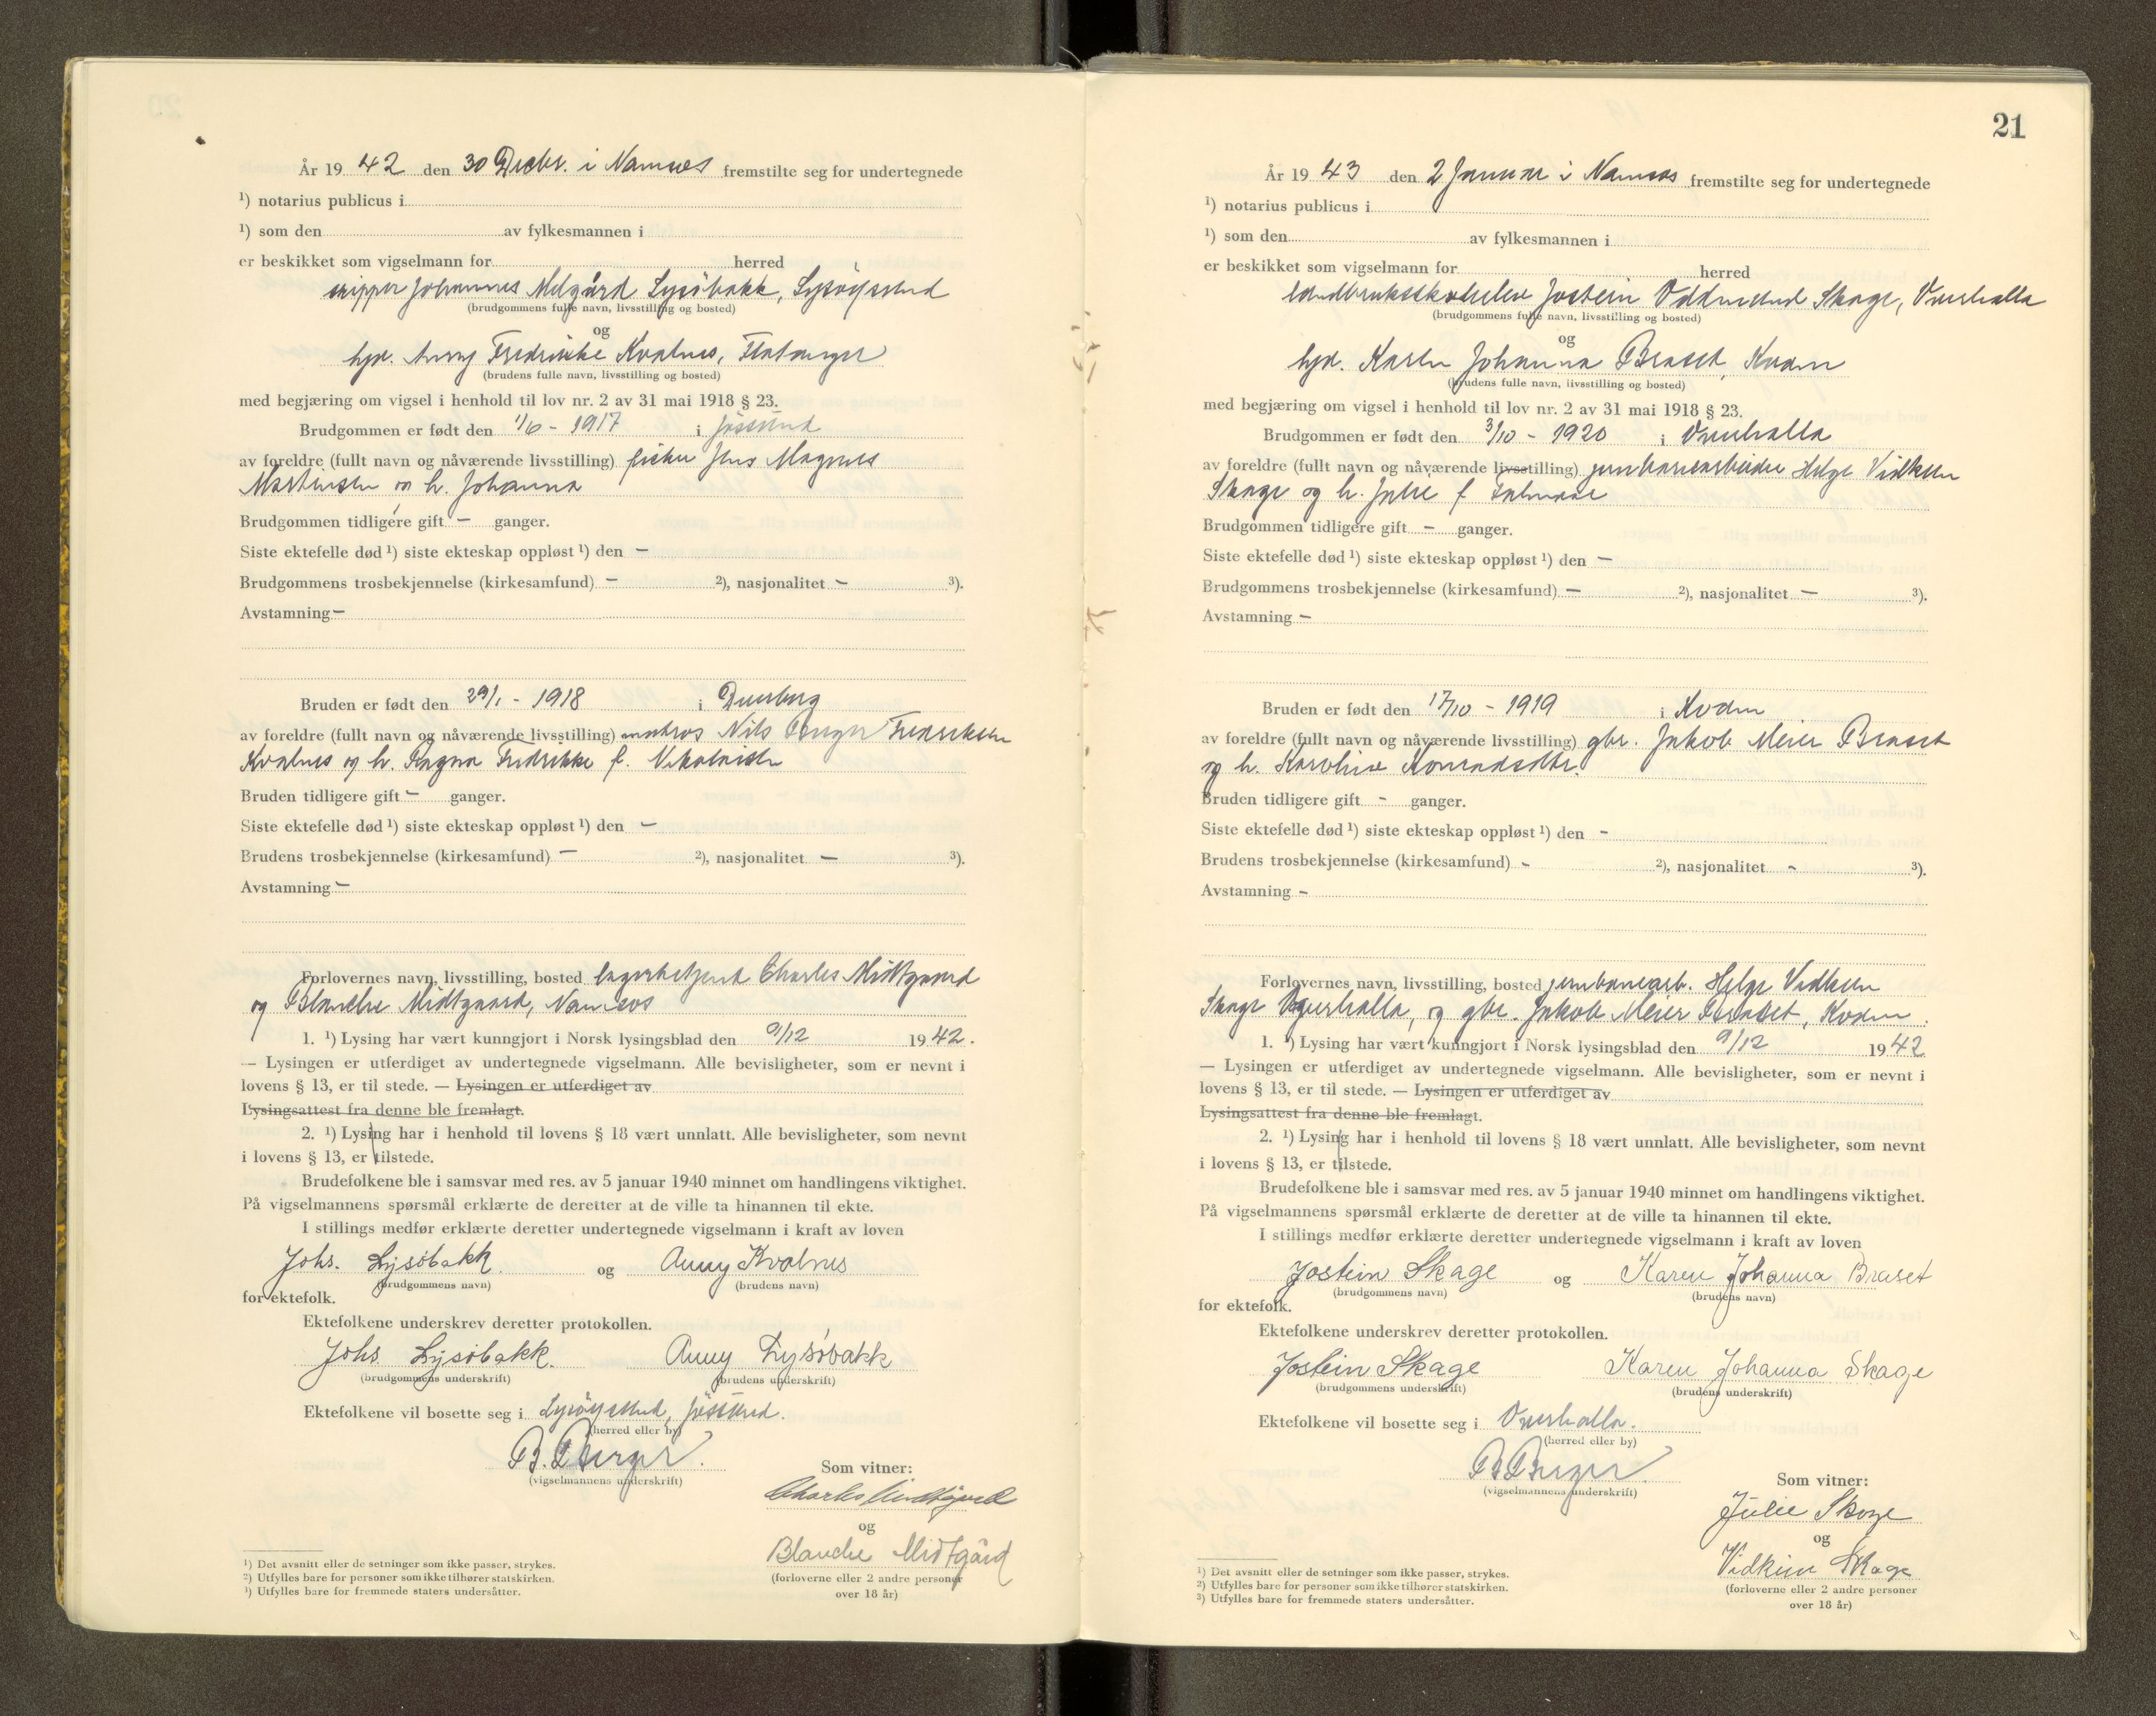 År 19 42 den 30 Decbr. i Namsos fremstilte seg for undertegnede
¹) notarius publicus i
¹) som den av fylkesmannen i
er beskikket som vigselmann for herred
skipper Johannes Melgård Lysöbakk, Lysöysund
(brudgommens fulle navn, livsstilling og bosted)
og
hjv. Anny Fredrikke Kvalnes, Flatanger
(brudens fulle navn, livsstilling og bosted)
med begjæring om vigsel i henhold til lov nr. 2 av 31 mai 1918 § 23.
Brudgommen er født den 1/6 - 1917 i Jössund
av foreldre (fullt navn og nåværende livsstilling) fisker Jens Magnus
Martinsen og h. Johanna
Brudgommen tidligere gift - ganger.
Siste ektefelle død ¹) siste ekteskap oppløst ¹) den -
Brudgommens trosbekjennelse (kirkesamfund) - ²), nasjonalitet - ³).
Avstamning -
Bruden er født den 29/1 - 1918 i
av foreldre (fullt navn og nåværende livsstilling) Nils Fredriksen
Kvalnes og h. Ragna Fredrikke f. Nikolaisen
Bruden tidligere gift - ganger.
Siste ektefelle død ¹) siste ekteskap oppløst ¹) den -
Brudens trosbekjennelse (kirkesamfund) - ²), nasjonalitet - ³).
Avstamning -
Forlovernes navn, livsstilling, bosted lagerbetjent Charles Midtgaard
og Blanche Midtgaard, Namsos
1. ¹) Lysing har vært kunngjort i Norsk lysingsblad den 9/12 19 42.
— Lysingen er utferdiget av undertegnede vigselmann. Alle bevisligheter, som er nevnt i
lovens § 13, er til stede. — Lysingen er utferdiget av
Lysingsattest fra denne ble fremlagt.
2. ¹) Lysing har i henhold til lovens § 18 vært unnlatt. Alle bevisligheter, som nevnt
i lovens § 13, er tilstede.
Brudefolkene ble i samsvar med res. av 5 januar 1940 minnet om handlingens viktighet.
På vigselmannens spørsmål erklærte de deretter at de ville ta hinannen til ekte.
I stillings medfør erklærte deretter undertegnede vigselmann i kraft av loven
Johs. Lysöbakk og Anny Kvalnes
(brudgommens navn) (brudens navn)
for ektefolk.
Ektefolkene underskrev deretter protokollen.
Johs Lysöbakk. Anny Lysöbakk
(brudgommens underskrift) (brudens underskrift)
Ektefolkene vil bosette seg i Lysöysund, Jössund.
(herred eller by)
B. Berger.
(vigselmannens underskrift)
Som vitner:
Charles Midtgaard
og
Blanche Midtgård
(forloverne eller 2 andre personer
over 18 år)
¹) Det avsnitt eller de setninger som ikke passer, strykes.
²) Utfylles bare for personer som ikke tilhører statskirken.
³) Utfylles bare for fremmede staters undersåtter.
21
År 19 43 den 2 Januar i Namsos fremstilte seg for undertegnede
¹) notarius publicus i
¹) som den av fylkesmannen i
er beskikket som vigselmann for herred
landbrukskoleelev Jostein Skage, Overhalla
(brudgommens fulle navn, livsstilling og bosted)
og
hjv. Karen Johanna Braset, Kvam
(brudens fulle navn, livsstilling og bosted)
med begjæring om vigsel i henhold til lov nr. 2 av 31 mai 1918 § 23.
Brudgommen er født den 3/10 - 1920 i Overhalla
av foreldre (fullt navn og nåværende livsstilling) jernbanearbeider Helge Vidkun
Skage og h. Julie f.
Brudgommen tidligere gift - ganger.
Siste ektefelle død ¹) siste ekteskap oppløst ¹) den -
Brudgommens trosbekjennelse (kirkesamfund) - ²), nasjonalitet - ³).
Avstamning -
Bruden er født den 17/10 - 1919 i Kvam
av foreldre (fullt navn og nåværende livsstilling) gbr. Jakob Meier Braset
og h. Karoline Konradsdtr.
Bruden tidligere gift - ganger.
Siste ektefelle død ¹) siste ekteskap oppløst ¹) den -
Brudens trosbekjennelse (kirkesamfund) - ²), nasjonalitet - ³).
Avstamning -
Forlovernes navn, livsstilling, bosted jernbanearb. Helge Vidkun
Skage Overhalla, og gbr. Jakob Meier Braset, Kvam.
1. ¹) Lysing har vært kunngjort i Norsk lysingsblad den 9/12 19 42
— Lysingen er utferdiget av undertegnede vigselmann. Alle bevisligheter, som er nevnt i
lovens § 13, er til stede. — Lysingen er utferdiget av
Lysingsattest fra denne ble fremlagt.
2. ¹) Lysing har i henhold til lovens § 18 vært unnlatt. Alle bevisligheter, som nevnt
i lovens § 13, er tilstede.
Brudefolkene ble i samsvar med res. av 5 januar 1940 minnet om handlingens viktighet.
På vigselmannens spørsmål erklærte de deretter at de ville ta hinannen til ekte.
I stillings medfør erklærte deretter undertegnede vigselmann i kraft av loven
Jostein Skage og Karen Johanna Braset
(brudgommens navn) (brudens navn)
for ektefolk.
Ektefolkene underskrev deretter protokollen.
Jostein Skage Karen Johanna Skage
(brudgommens underskrift) (brudens underskrift)
Ektefolkene vil bosette seg i Overhalla.
(herred eller by)
B Berger.
(vigselmannens underskrift)
Som vitner:
Julie Skage
og
Vidkun Skage
(forloverne eller 2 andre personer
over 18 år)
¹) Det avsnitt eller de setninger som ikke passer, strykes.
²) Utfylles bare for personer som ikke tilhører statskirken.
³) Utfylles bare for fremmede staters undersåtter.